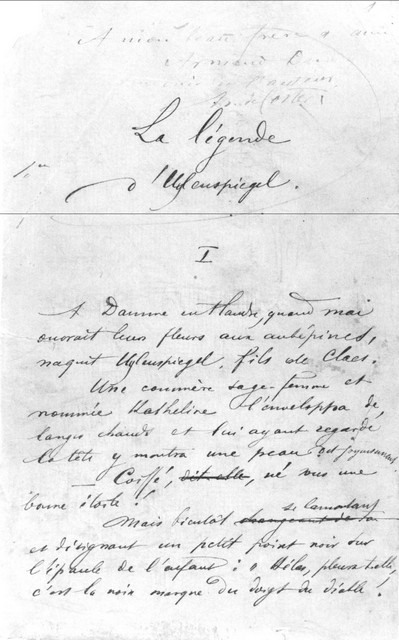 1
A mon
Armand
La légende
d'Uylenspiegel.
I
A Damme en Flandre, quand mai
ouvrait leurs fleurs aux aubépines,
naquit Uylenspiegel, fils de Claes.
Une commère sage-femme et
nommée Katheline l'enveloppa de
langes chauds et lui ayant regardé
la tête y montra une peau
— Coiffé, dit-elle, né sous une
bonne étoile!
se lamentant
Mais bientôt
et désignant un petit point noir sur
l'épaule de l'enfant: « Hélas, pleura-t-elle,
c'est la noire marque du doigt du diable!